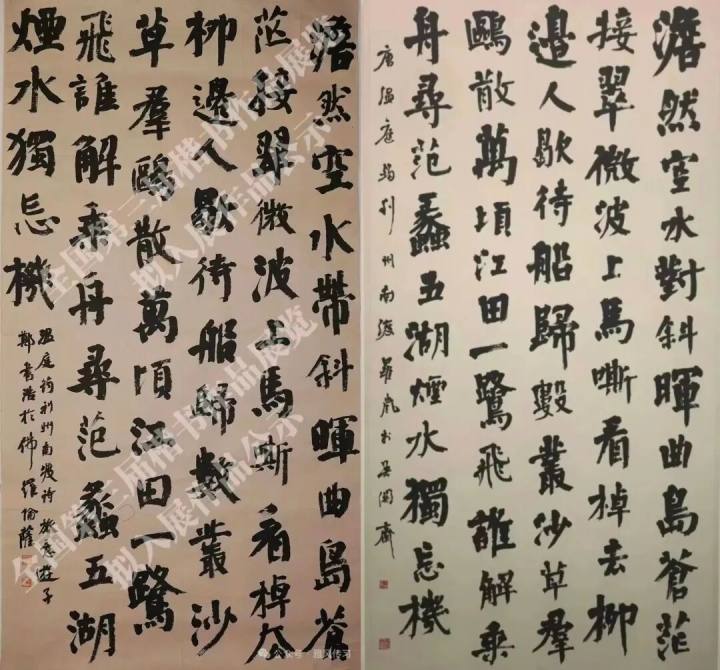 澹然空水帶斜暉曲島蒼
茫接翠微波上馬嘶看棹去
柳邊人歇待船歸數叢沙
草羣鷗散萬頃江田一鷺
飛誰解乘舟尋范蠡五湖
煙水獨忘機
温庭筠利州南渡詩 游子
鄭書浩於佛羅倫薩
澹然空水對斜暉曲島蒼茫
接翠微波上馬嘶看棹去柳
邊人歇待船歸數叢沙草羣
鷗散萬頃江田一鷺飛誰解乘
舟尋范蠡五湖煙水獨忘機
唐温庭筠利州南渡 於 齋
全国第三届楷书作品展览
拟入展作品公示
全国第三届楷书作品展览
拟入展作品公示
公众号·雅风传习